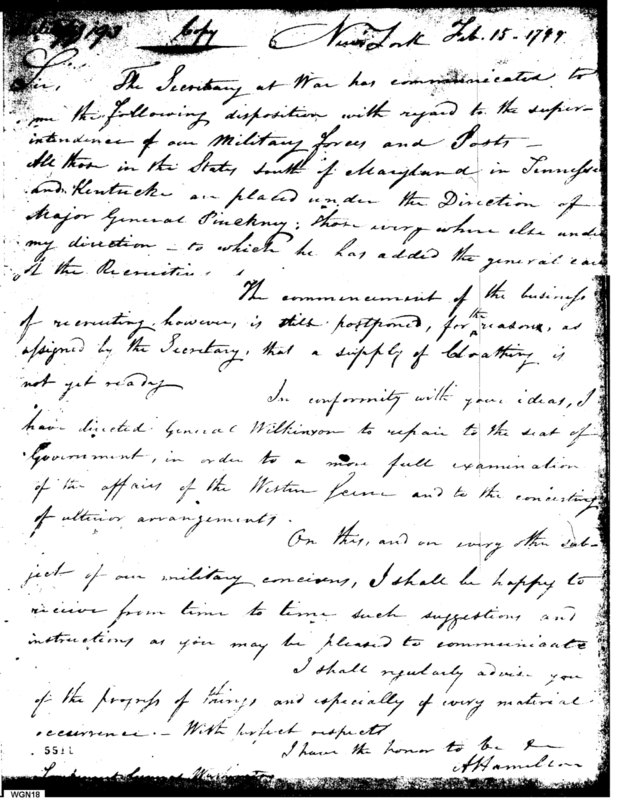 Copy New York Feb. 15 - 1799
Sir, The Secretary at War has communicated to
me the following disposition with regard to the super-
intendence of our Military forces and Posts -
All those in the States south of Maryland in Tennessee
and Kentucke are placed under the Direction of
Major General Pinckney; those every where else under
my direction - to which he has added the general care
of the Recruiting
The commencement of the business
of recruiting, however, is still postponed, for the reasons, as
assigned by the Secretary, that a supply of Cloathing is
not yet ready
In conformity with your ideas, I
have directed General Wilkinson to repair to the seat of
Government, in order to a more full examination
of the affairs of the Western Scene and to the concerting
of ulterior arrangements.
On this, and on every other sub-
ject of our military concerns, I shall be happy to
receive from time to time such suggestions and
instructions as you may be pleased to communicate
I shall regularly advise you
of the progress of things and especially of every material
occurrence. - With perfect respects
I have the honor to be &
AHamilton
Lieutenant General Washington
WGN18